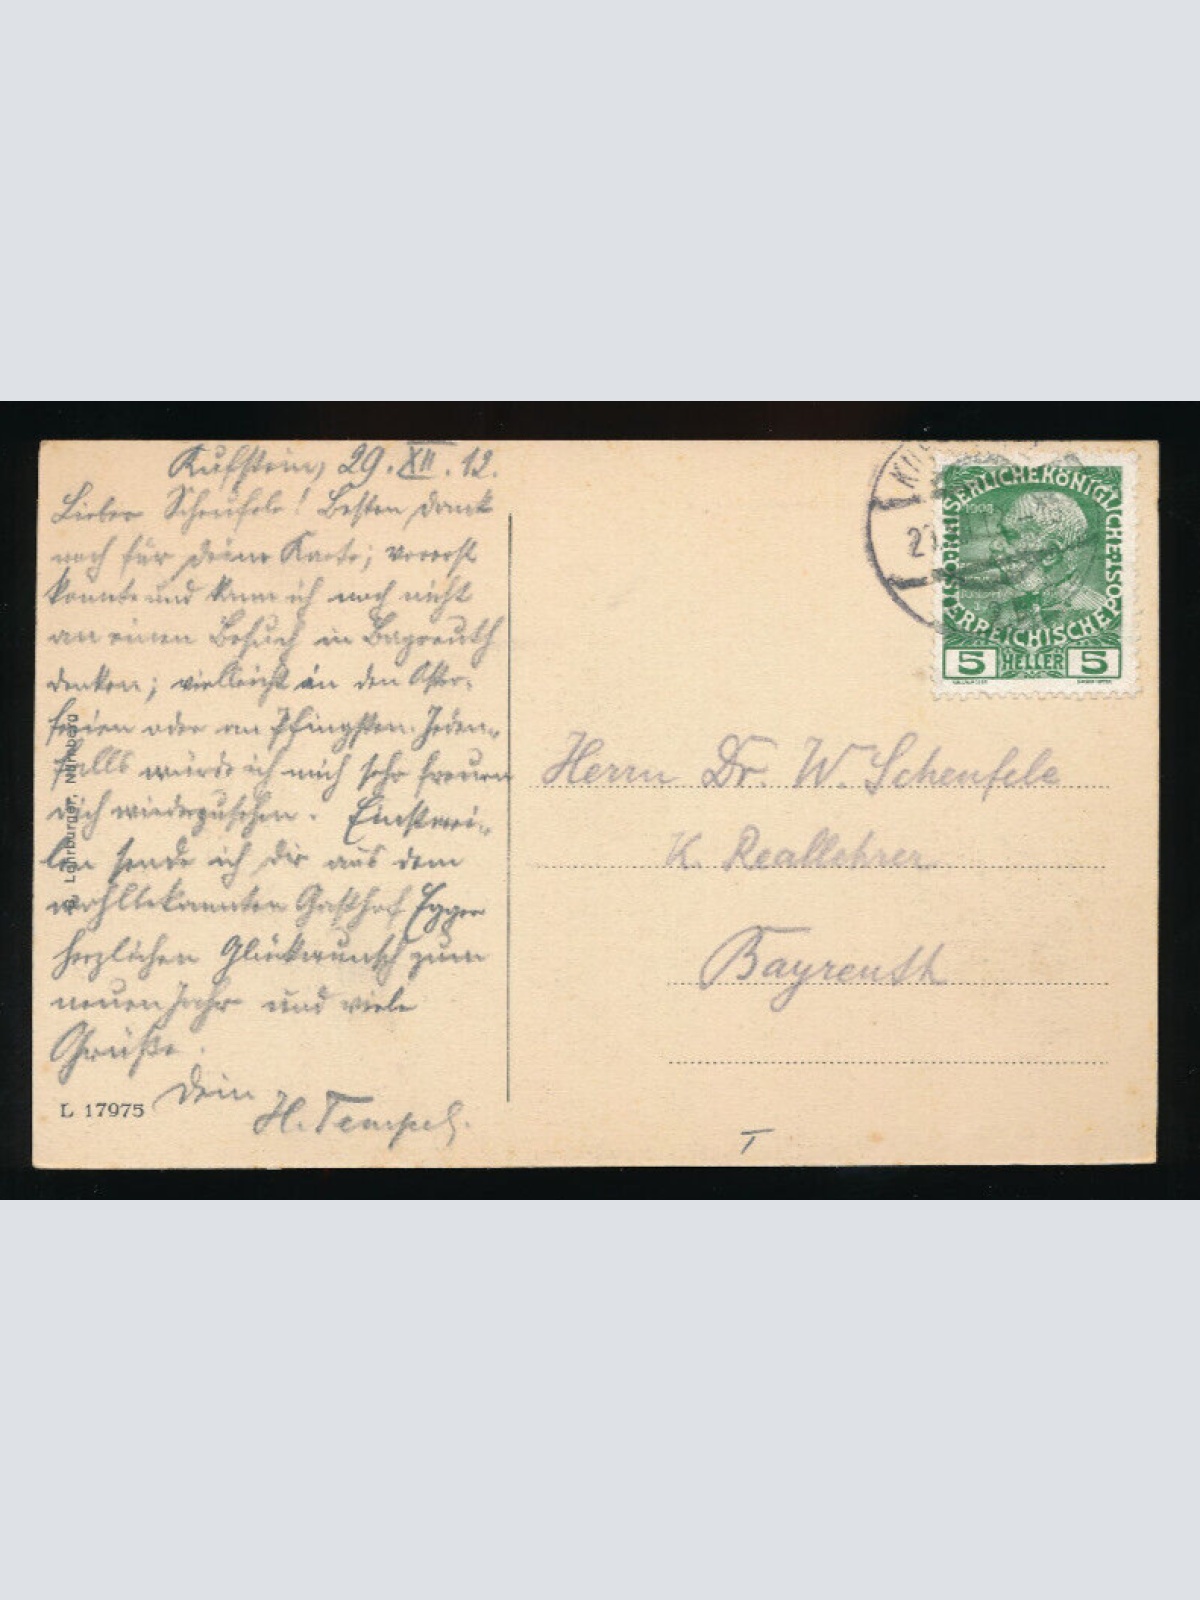 Kufstein, 29. XII. 12.
Lieber Scheufele! Besten Dank
noch für Deine Karte; vorerst
konnte und kann ich noch nicht
an einen Besuch in Bayreuth
denken; vielleicht in den Oster-
ferien oder an Pfingsten. Jeden-
falls würde ich mich sehr freuen
Dich wiederzusehen. Einstwei-
len sende ich Dir aus dem
wohlbekannten Gasthof Egger
herzlichen Glückwunsch zum
neuen Jahr und viele
Grüße.
Dein
H. Tempel.
L 17975
Lohrburger, Nürnberg
KUF
KAISERLICHE KÖNIGLICHE
ÖSTERREICHISCHE POST
1908
5 HELLER 5
Herrn Dr. W. Scheufele
K. Reallehrer
Bayreuth
T